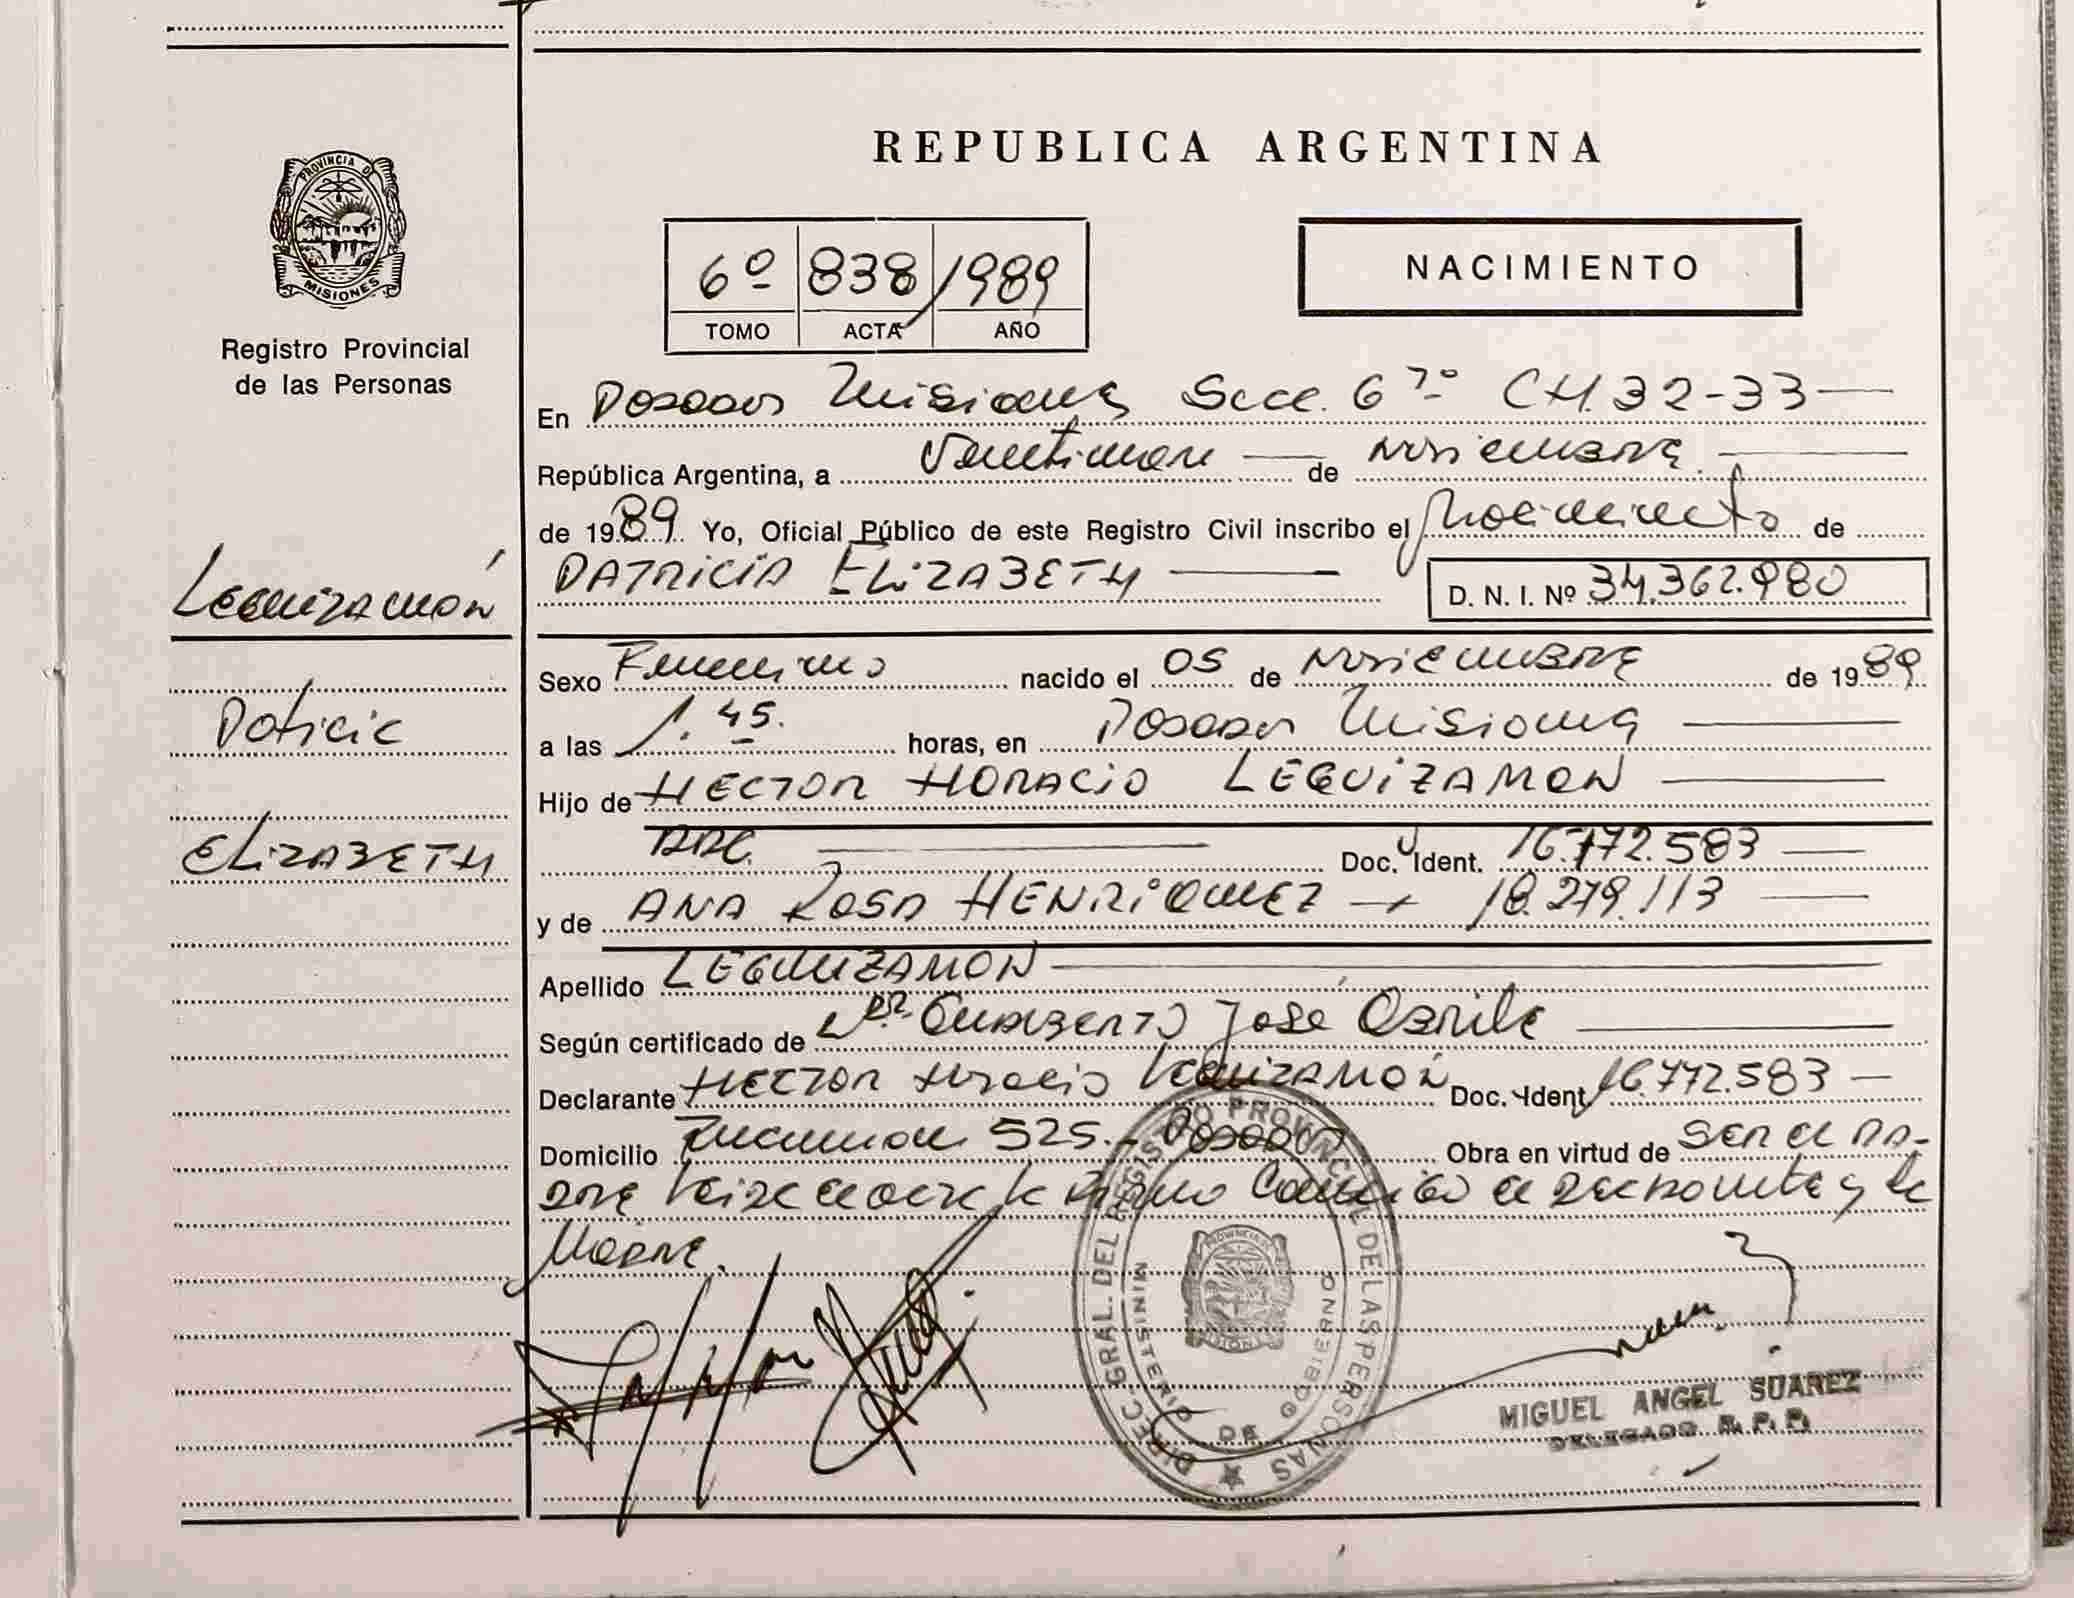 REPUBLICA ARGENTINA
PROVINCIA DE
MISIONES
Registro Provincial
de las Personas
6º 838/1989
TOMO ACTA AÑO
NACIMIENTO
En Posadas Misiones Secc. 6ª CH. 32-33
República Argentina, a de Noviembre
de 1989 Yo, Oficial Público de este Registro Civil inscribo el Nacimiento de
PATRICIA ELIZABETH
D. N. I. Nº 34.362.980
Leguizamón
Patricia
ELIZABETH
Sexo Femenino nacido el 05 de Noviembre de 1989
a las 1.45. horas, en Posadas Misiones
Hijo de HECTOR HORACIO LEGUIZAMON
ARG. Doc. Ident. 16.772.583
y de ANA ROSA HENRIQUEZ 18.279.113
Apellido LEGUIZAMON
Según certificado de José
Declarante HECTOR Horacio Leguizamón Doc. Ident. 16.772.583
Domicilio Tucuman 525.- Posadas Obra en virtud de ser el pa-
dre firma y la
Madre.
DIREC. GRAL. DEL REGISTRO PROVINCIAL DE LAS PERSONAS
MINISTERIO DE GOBIERNO
MIGUEL ANGEL SUAREZ
DELEGADO R. P. P.